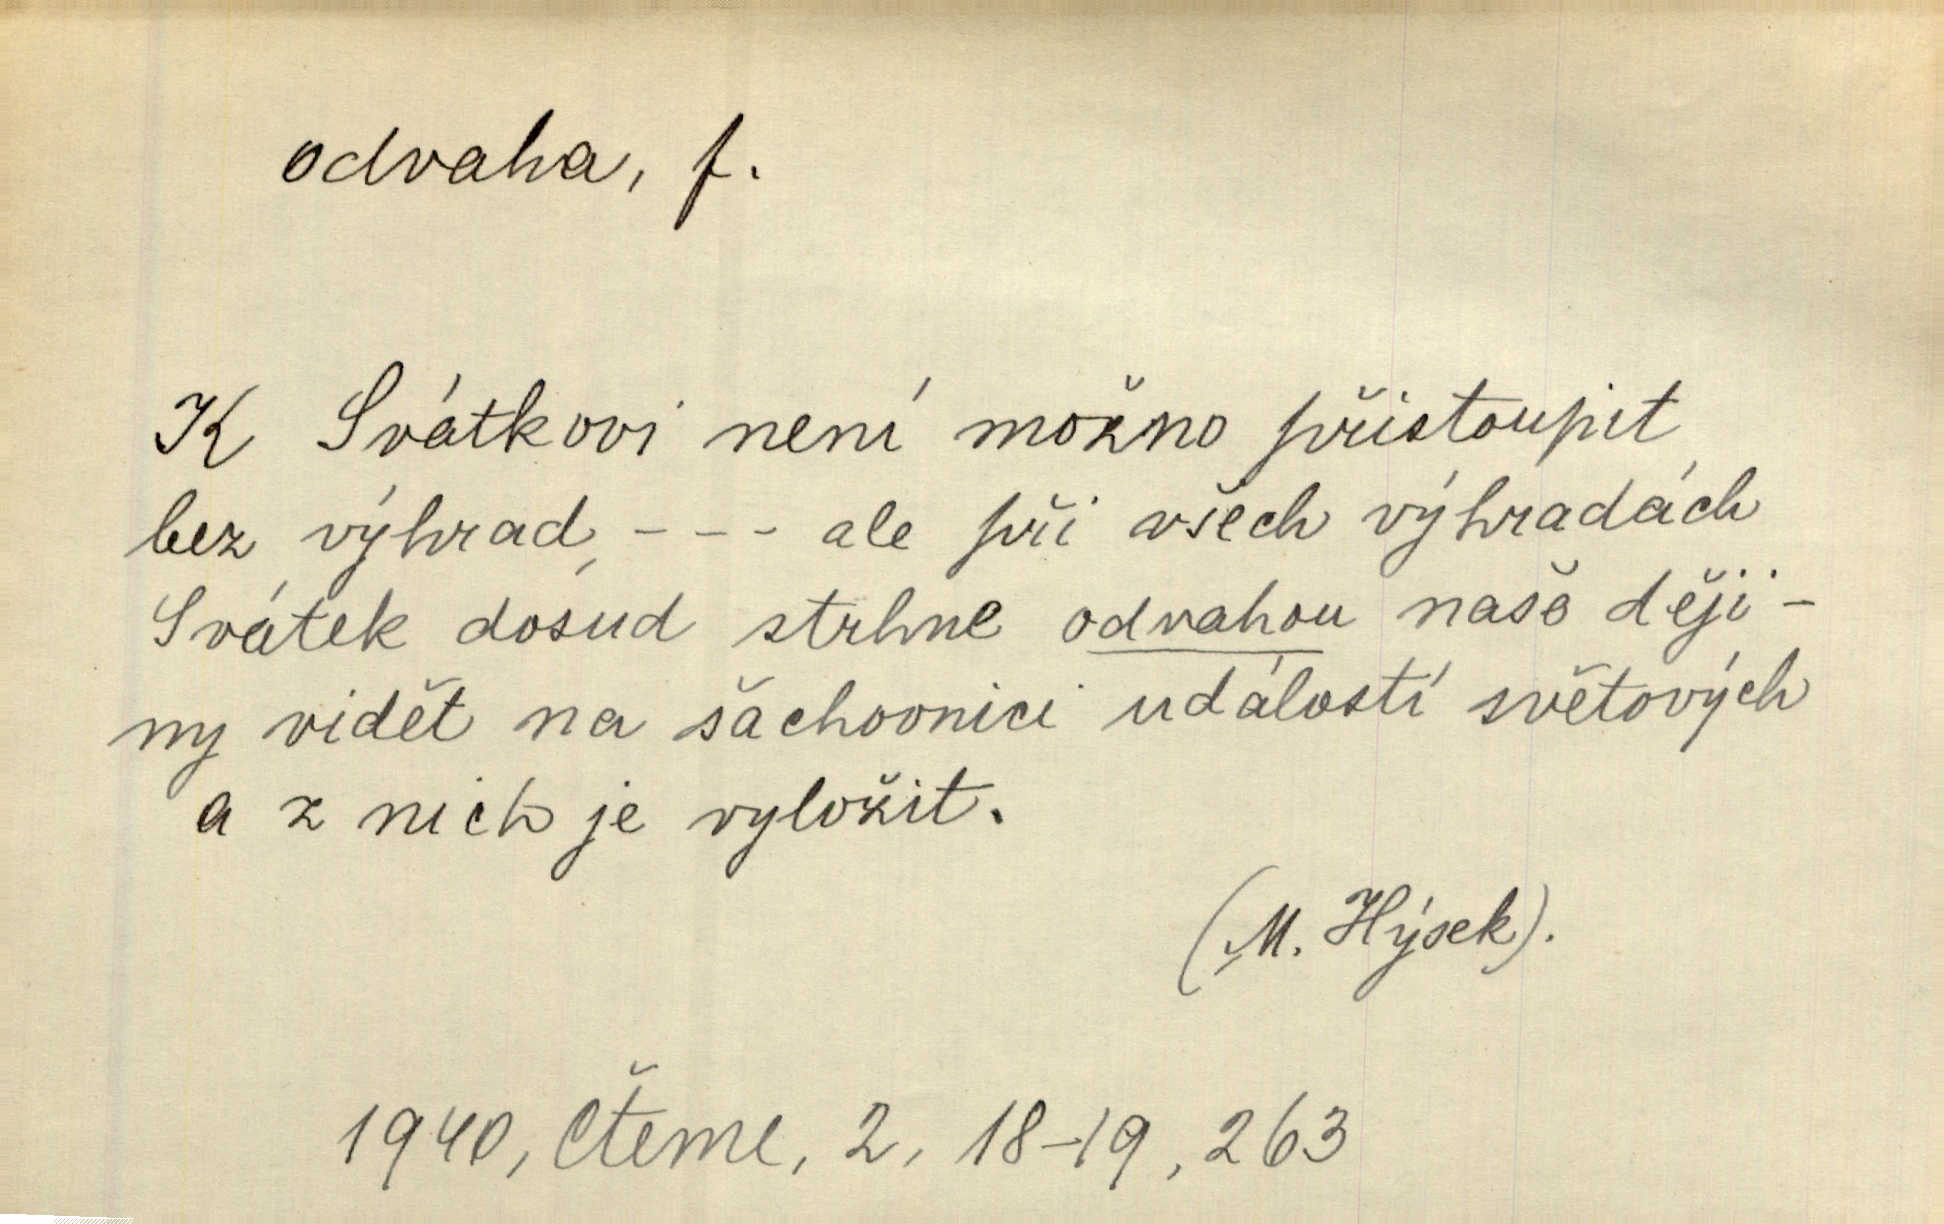 odvaha, f.
K Svátkovi není možno přistoupit
bez výhrad, - - - ale při všech výhradách
Svátek dosud strhne odvahou naše ději-
ny vidět na šachovnici událostí světových
a z nich je vyložit.
(M. Hýsek).
1940, Čteme, 2, 18-19, 263